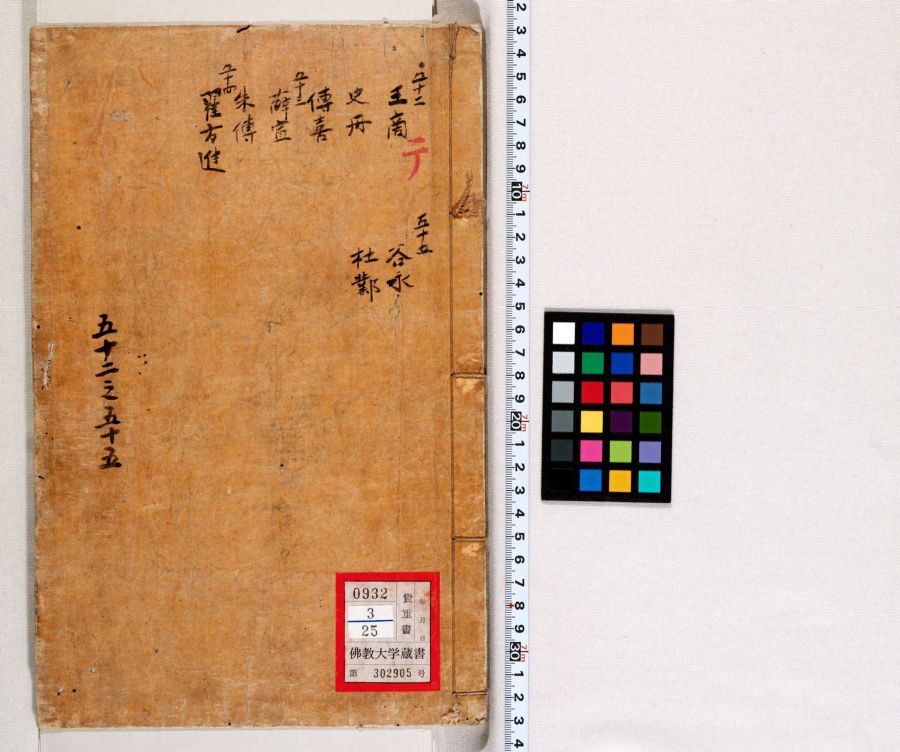 五十二
王商
史丹
五十三
傅喜
薛宣
五十四
朱傅
翟方進
テ
五十五
谷永
杜鄴
五十二之五十五
0932
3
25
貴重書
年月日
佛教大学蔵書
第 302905 号
2 3 4 5 6 7 8 9 10 1 2 3 4 5 6 7 8 9 20 1 2 3 4 5 6 7 8 9 30 1 2 3 4